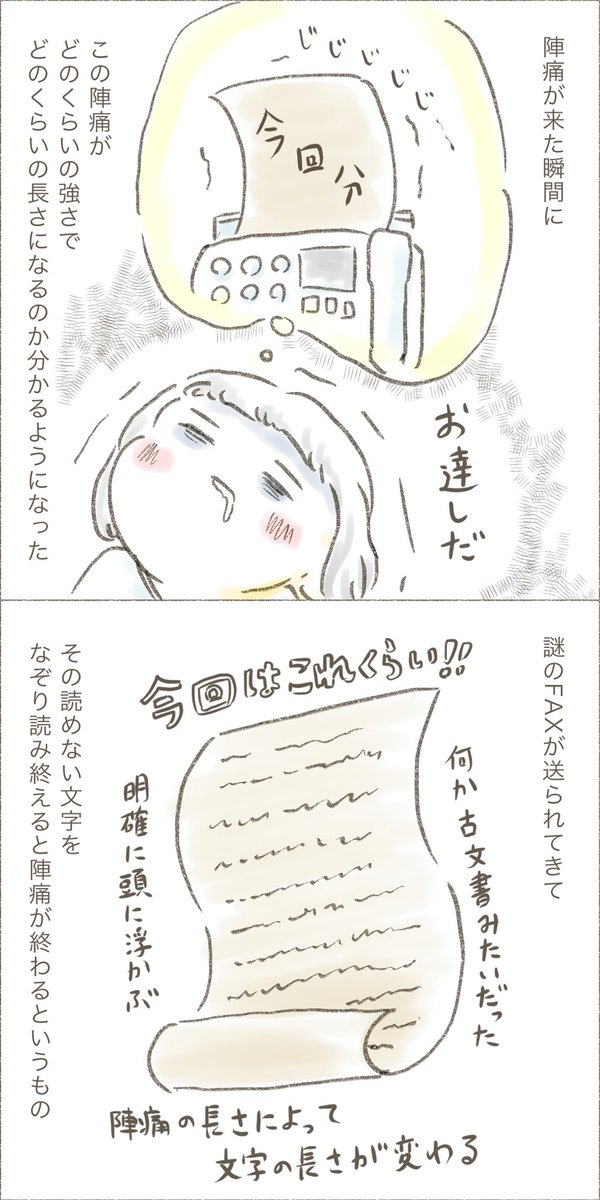 陣痛が来た瞬間に
じじじじじ
今回分
この陣痛が
どのくらいの強さで
どのくらいの長さになるのか分かるようになった
お達しだ
謎のFAXが送られてきて
今回はこれくらい!!
何か古文書みたいだった
明確に頭に浮かぶ
その読めない文字を
なぞり読み終えると陣痛が終わるというもの
陣痛の長さによって
文字の長さが変わる